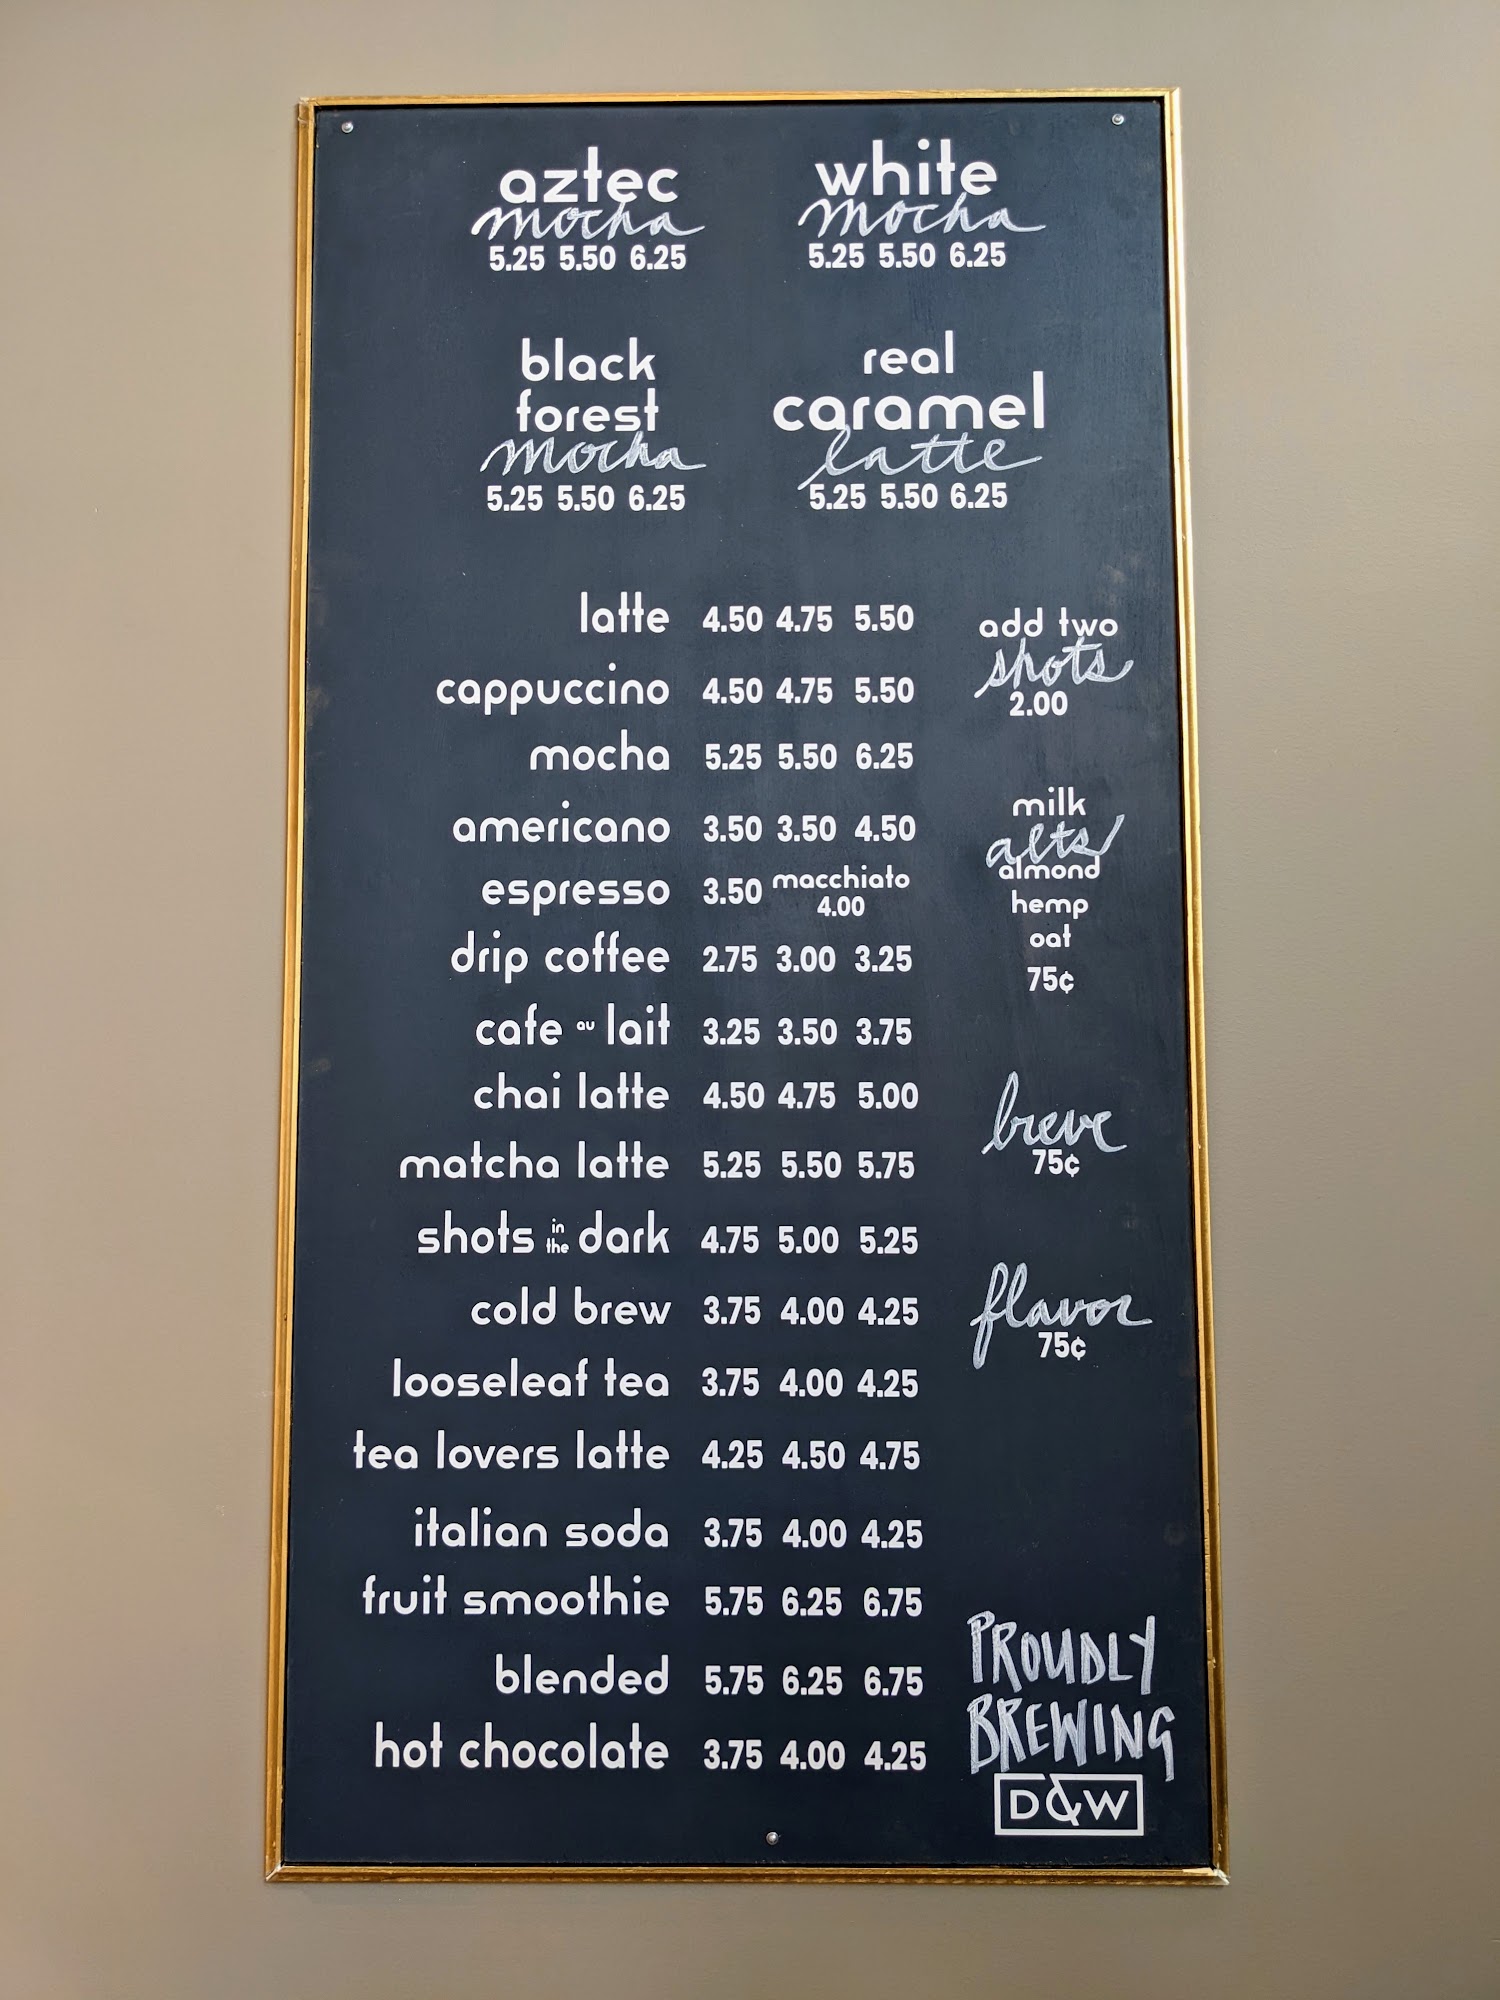 aztec
mocha
5.25 5.50 6.25
white
mocha
5.25 5.50 6.25
black
forest
mocha
5.25 5.50 6.25
real
caramel
latte
5.25 5.50 6.25
latte 4.50 4.75 5.50
cappuccino 4.50 4.75 5.50
mocha 5.25 5.50 6.25
americano 3.50 3.50 4.50
espresso 3.50 macchiato 4.00
drip coffee 2.75 3.00 3.25
cafe au lait 3.25 3.50 3.75
chai latte 4.50 4.75 5.00
matcha latte 5.25 5.50 5.75
shots in the dark 4.75 5.00 5.25
cold brew 3.75 4.00 4.25
looseleaf tea 3.75 4.00 4.25
tea lovers latte 4.25 4.50 4.75
italian soda 3.75 4.00 4.25
fruit smoothie 5.75 6.25 6.75
blended 5.75 6.25 6.75
hot chocolate 3.75 4.00 4.25
add two
shots
2.00
milk
alts
almond
hemp
oat
75¢
breve
75¢
flavor
75¢
PROUDLY
BREWING
D&W